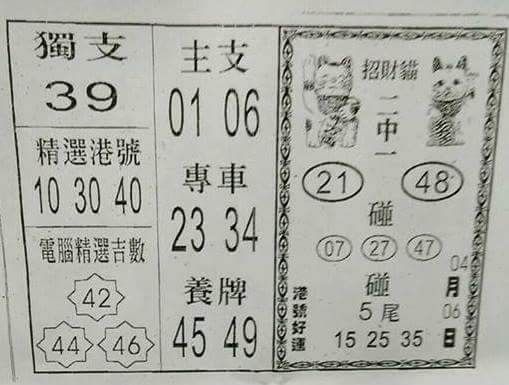 獨支
39
精選港號
10 30 40
電腦精選吉數
42
44 46
主支
01 06
專車
23 34
養牌
45 49
招財貓
二中一
21 48
碰
07 27 47
碰
5尾
15 25 35
港號好運
04
月
06
日